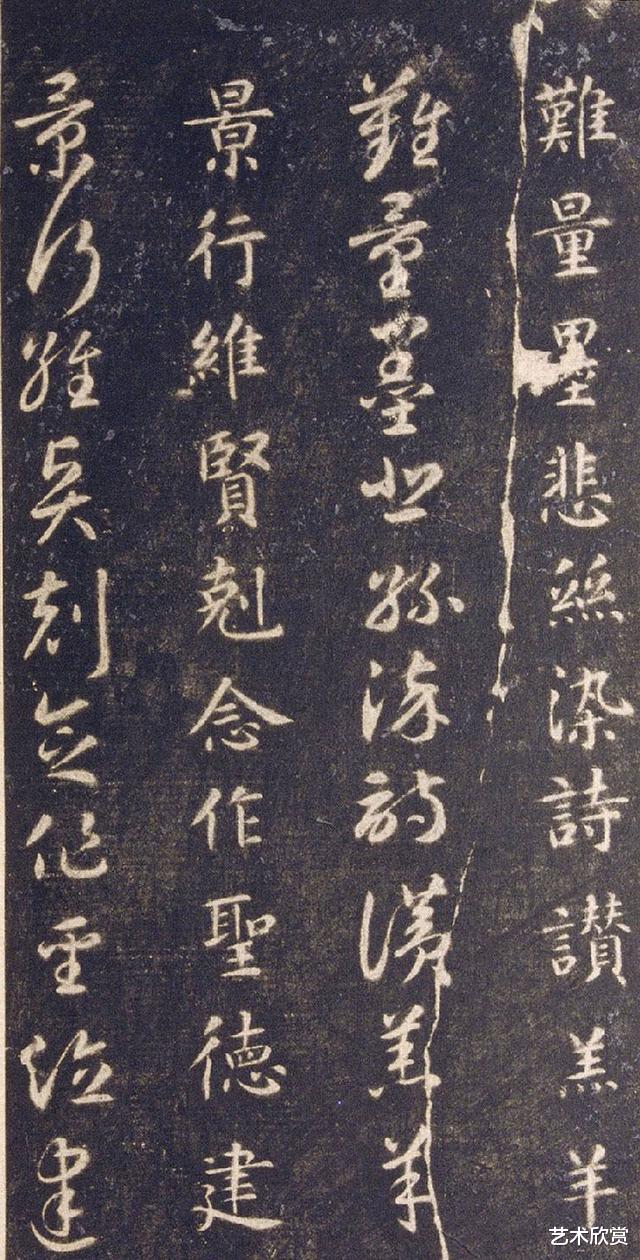 難量墨悲絲染詩讃羔羊
難量墨悲絲染詩讚羔羊
景行維賢剋念作聖德建
景行維賢剋念作聖德建
艺术欣赏